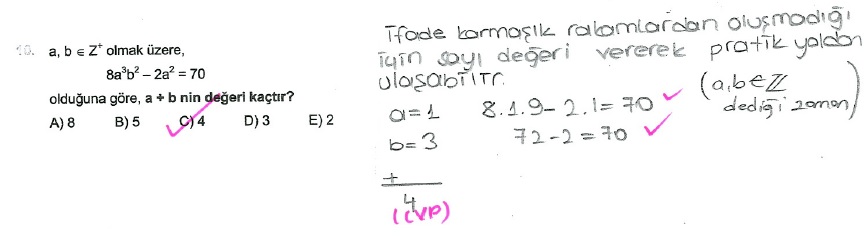 10. a, b ∈ Z⁺ olmak üzere,
8a³b² – 2a² = 70
olduğuna göre, a + b nin değeri kaçtır?
A) 8 B) 5 C) 4 D) 3 E) 2
İfade karmaşık rakamlardan oluşmadığı
için sayı değeri vererek pratik yoldan
ulaşabilir.
a=1 8.1.9-2.1=70 ✓
b=3 72-2=70 ✓
(a,b∈ℤ
dediği zaman)
+
4
(CVP)